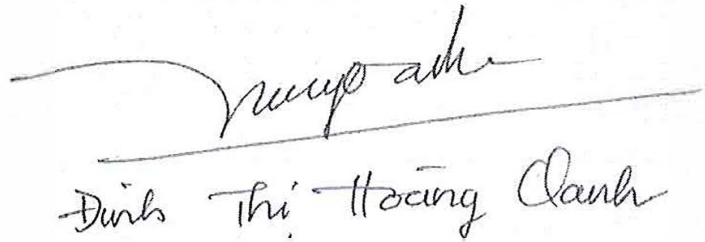 Đinh Thị Hoàng Oanh